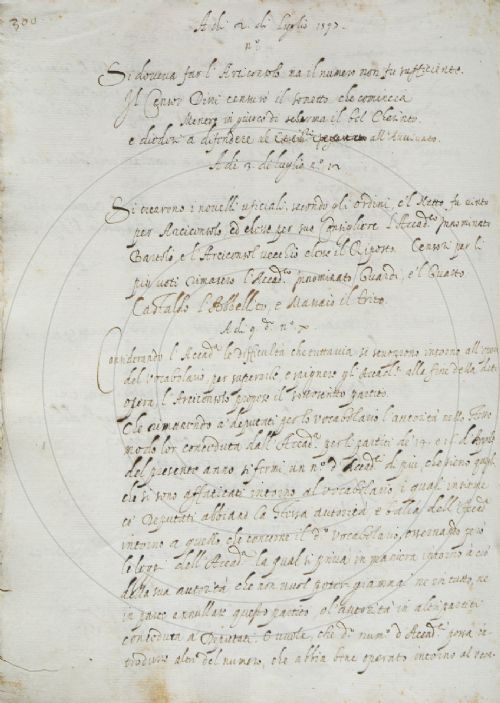 300
A di 2 di Luglio 1597.
n.°
Si doveva far l'Arciconsolo ma il numero non fu sufficiente.
Il Censor Dini censurò il sonetto che comincia
Mentre in giuoco di scherma il bel
e diedesi a difendere al all'Avvivato.
A di 3 di luglio n.° 12
Si crearono i novelli uficiali, secondo gli ordini, e'l Netto fu vinto
per Arciconsolo ed elesse per suo Consigliere l'Accad.co Innominato
e l'Arciconsol vecchio elesse il Riposto. Censori per li
più voti rimasero l'Accad.co Innominato Guardi, e'l
Castaldo l'Abbellito, e Massaio il Trito.
A di 9 d.° n.°
Considerando l'Accad.a le difficultà che tuttavia si sentivano intorno all'opera
del vocabolario, per superarle e spignere gli Accad.ci alla fine della detta
opera l'Arciconsolo propose il sottoscritto partito.
Che rimanendo a' deputati per lo vocabolario l'autorità nello stesso
modo lor conceduta dall'Accad.a per li partiti de' 14. e di
del presente anno si formi un n.° d'Accad.ci di più, che sieno quegli
che si sono affaticati intorno al vocabolario, i quali insieme
co' Deputati abbiano la stessa autorità e balìa dell'Accad.a
intorno a quello che concerne il d.° vocabolario, osservando però
le leggi dell'Accad.a la qual si privi in maniera intorno a ciò
della sua autorità che non possa giammai ne in tutto, ne
in parte annullare questo partito o l'autorità in altri partiti
conceduta a' Deputati e vuole, che d.° num.° d'Accad.ci possa in-
trodurre altri del numero, che abbia bene operato intorno al voca-